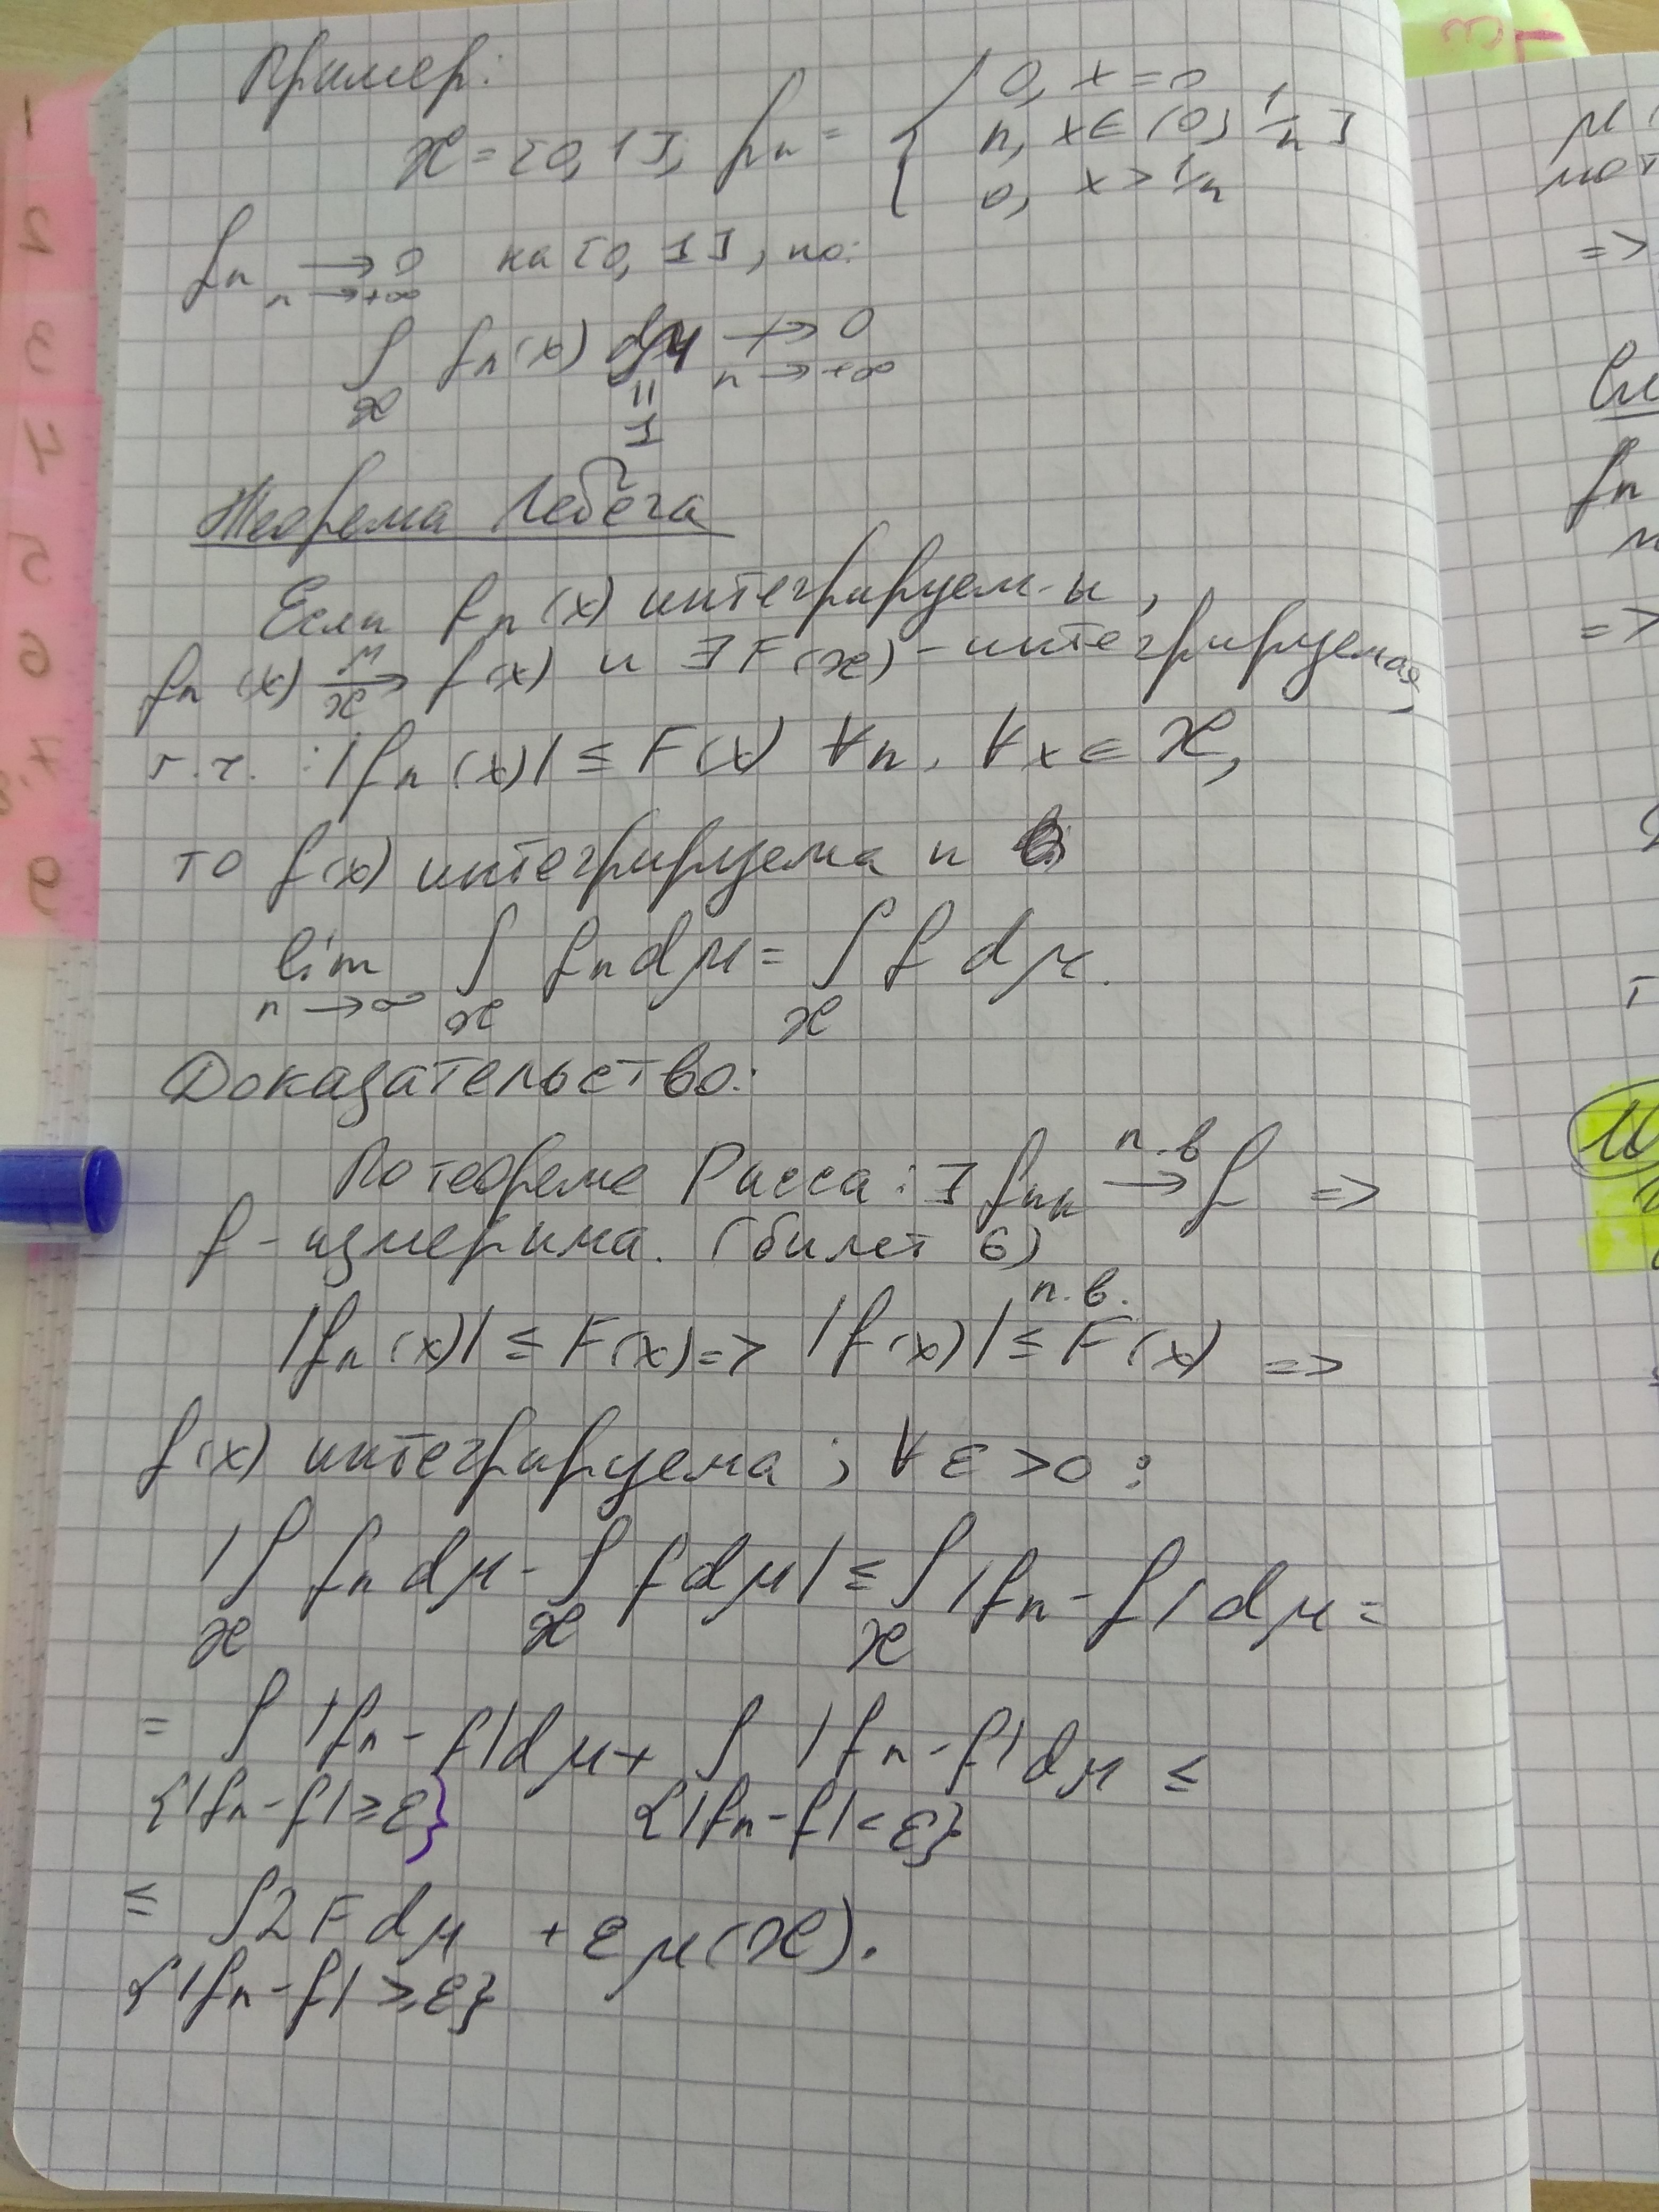 Пример:
𝒳 = [0, 1], fₙ = { 0, x = 0
n, x ∈ (0, 1/n]
0, x > 1/n
fₙ → 0 на [0, 1], но:
n → +∞
∫ fₙ(x) dμ ↛ 0
𝒳 n → +∞
||
1
Теорема Лебега
Если fₙ(x) интегрируем-ы,
fₙ(x) —μ/𝒳→ f(x) и ∃ F(x) - интегрируемая,
т.ч. : |fₙ(x)| ≤ F(x) ∀n, ∀x ∈ 𝒳,
то f(x) интегрируема и
lim ∫ fₙ dμ = ∫ f dμ.
n → ∞ 𝒳 𝒳
Доказательство:
По теореме Рисса: ∃ fₙₖ —п.в→ f =>
f - измерима. (билет 6)
|fₙ(x)| ≤ F(x) => |f(x)| ≤ п.в. F(x) =>
f(x) интегрируема ; ∀ ε > 0 :
|∫ fₙ dμ - ∫ f dμ| ≤ ∫ |fₙ - f| dμ =
𝒳 𝒳 𝒳
= ∫ |fₙ - f| dμ + ∫ |fₙ - f| dμ ≤
{|fₙ - f| ≥ ε} {|fₙ - f| < ε}
≤ ∫ 2F dμ + ε μ(𝒳).
{|fₙ - f| ≥ ε}
μ
=>
fₙ
=>